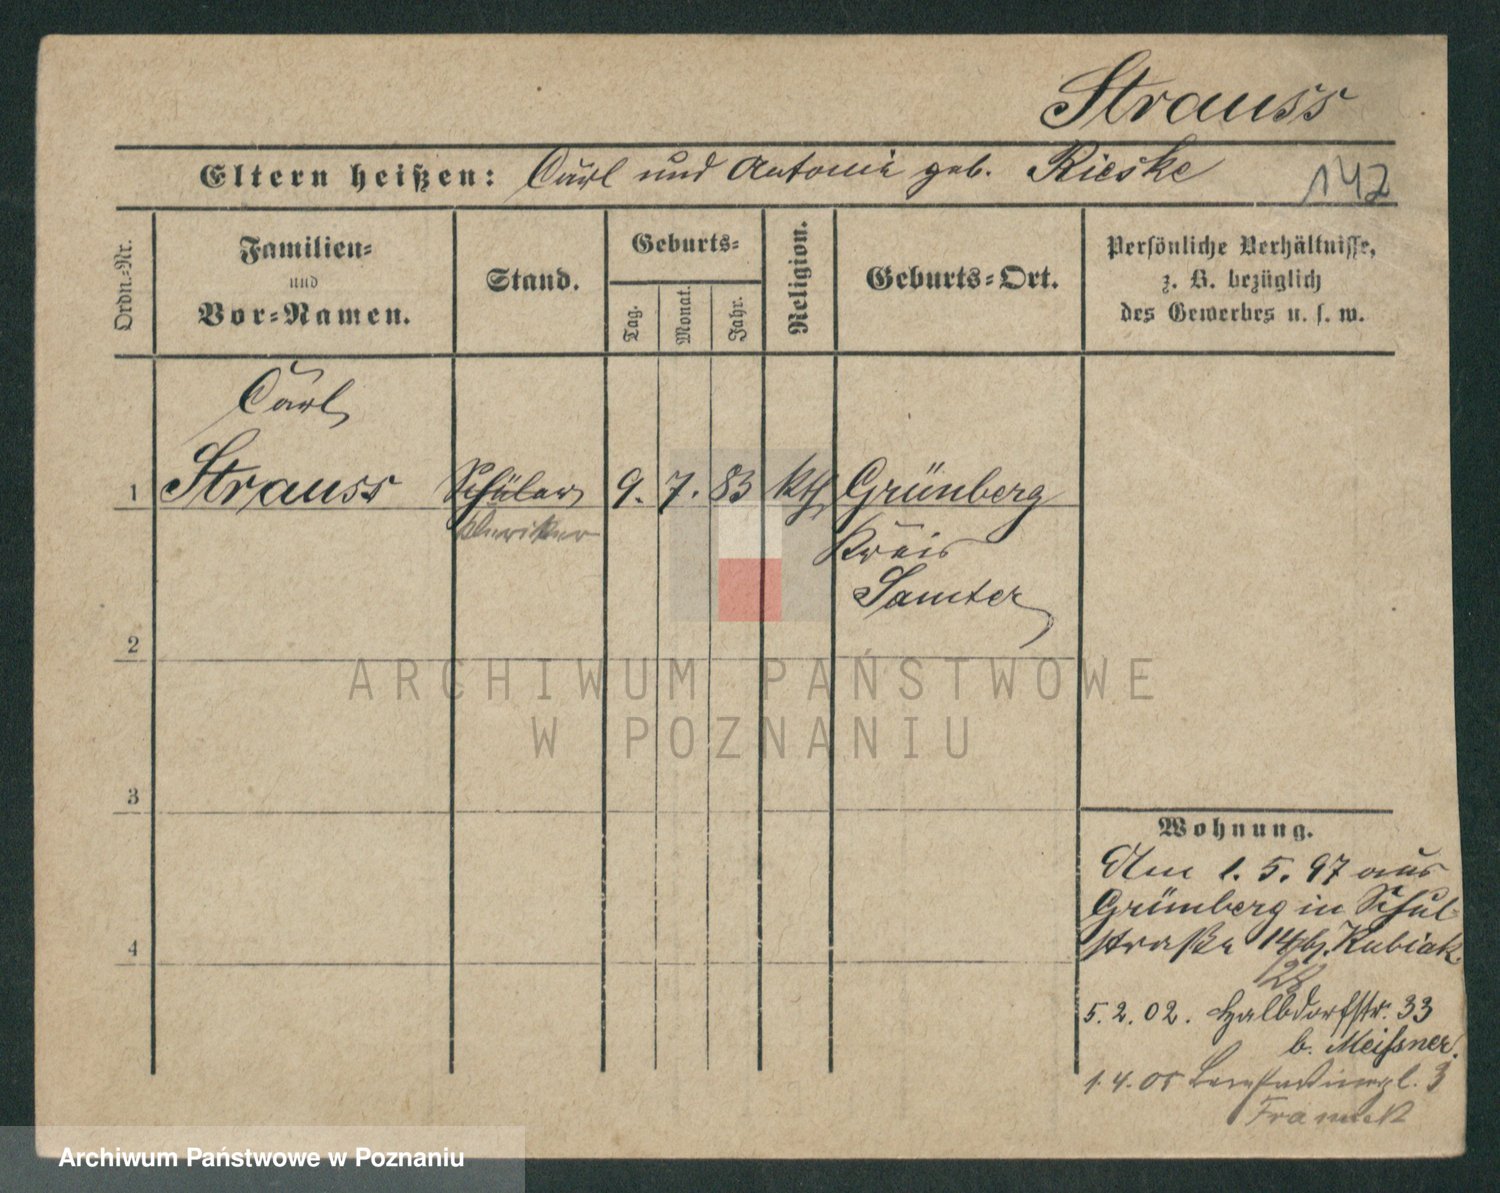 Strauss
Eltern heißen: Carl und Antonie geb. Rieske
142
Ordn.-Nr.
Familien-
und
Vor-Namen.
Stand.
Geburts-
Tag.
Monat.
Jahr.
Religion.
Geburts-Ort.
Persönliche Verhältnisse,
z. B. bezüglich
des Gewerbes u. s. w.
Carl
1 Strauss Schüler 9. 7. 83 kth Grünberg
Kleriker
Kreis
Samter
2
3
4
Wohnung.
Am 1. 5. 97 aus
Grünberg in Schul-
straße 14 b. Kubiak
5. 2. 02. Halbdorfstr. 33
b. Meißner.
1. 4. 05 3
ARCHIWUM PAŃSTWOWE
W POZNANIU
Archiwum Państwowe w Poznaniu